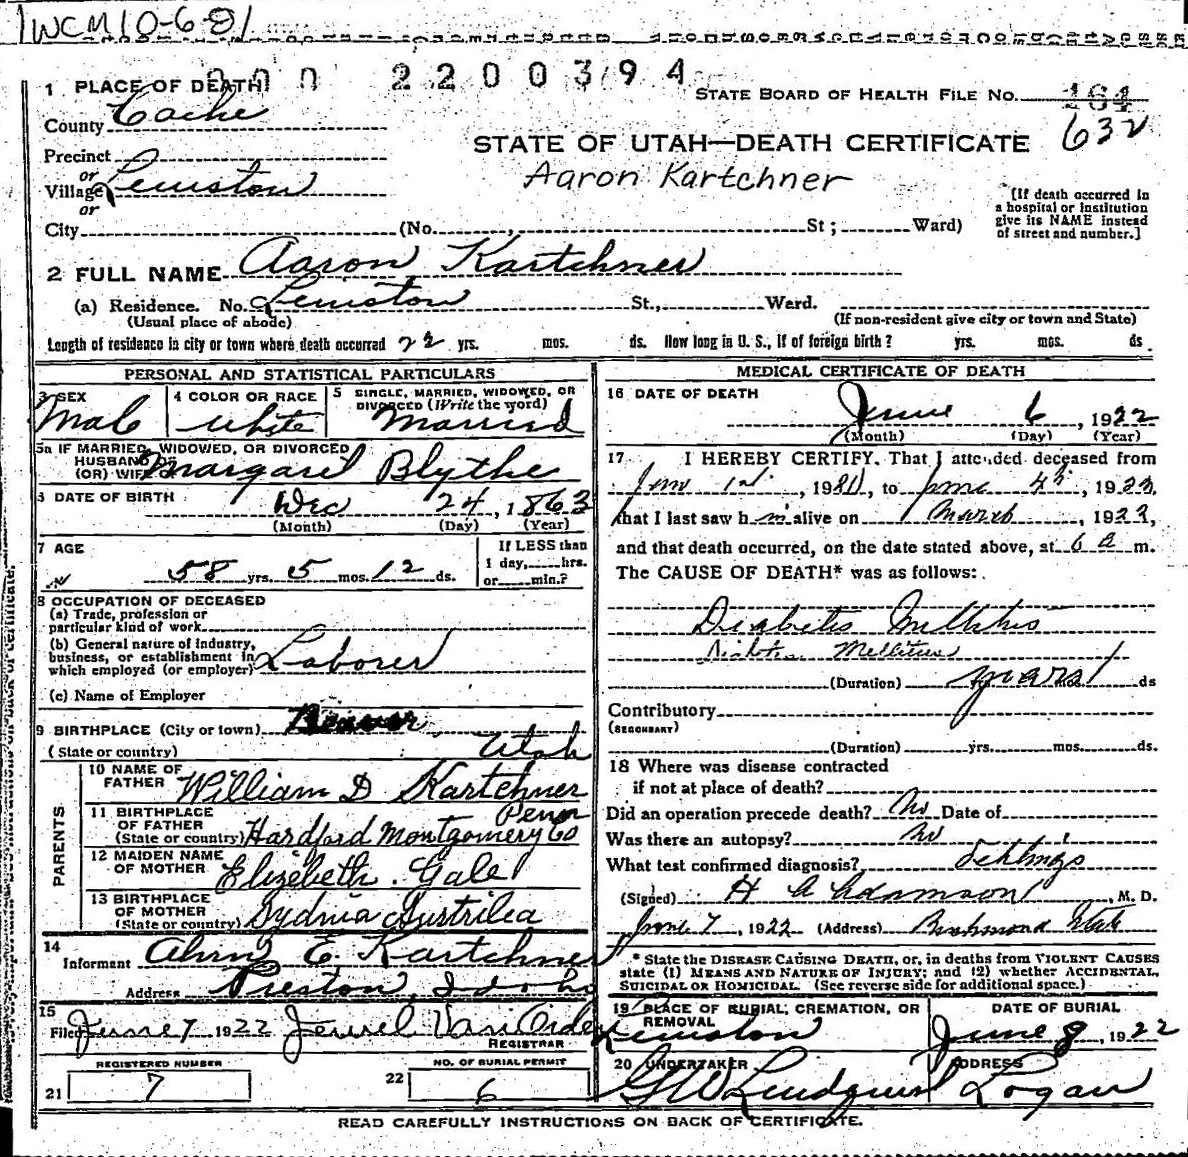 WCM 10-6-81
000 2200394
1 PLACE OF DEATH
STATE BOARD OF HEALTH FILE No. 164
County Cache
632
STATE OF UTAH—DEATH CERTIFICATE
Precinct
or
Aaron Kartchner
Village Lewiston
or
[If death occurred in
a hospital or institution
give its NAME instead
of street and number.]
City (No. , St ; Ward)
2 FULL NAME Aaron Kartchner
(a) Residence. No. Lewiston St., Ward.
(Usual place of abode) (If non-resident give city or town and State)
Length of residence in city or town where death occurred 22 yrs. mos. ds. How long in U. S., if of foreign birth? yrs. mos. ds.
PERSONAL AND STATISTICAL PARTICULARS
3 SEX 4 COLOR OR RACE 5 SINGLE, MARRIED, WIDOWED, OR
DIVORCED (Write the word)
Male white Married
5a IF MARRIED, WIDOWED, OR DIVORCED
HUSBAND
(OR) WIFE OF Margaret Blythe
6 DATE OF BIRTH Dec 24, 1863
(Month) (Day) (Year)
7 AGE If LESS than
1 day, hrs.
58 yrs. 5 mos. 12 ds. or min.?
8 OCCUPATION OF DECEASED
(a) Trade, profession or
particular kind of work
(b) General nature of industry,
business, or establishment in
which employed (or employer) Laborer
(c) Name of Employer
9 BIRTHPLACE (City or town) Beaver
(State or country) Utah
PARENTS
10 NAME OF
FATHER William D Kartchner
11 BIRTHPLACE Penn
OF FATHER
(State or country) Hardford Montgomery Co
12 MAIDEN NAME
OF MOTHER Elizebeth Gale
13 BIRTHPLACE
OF MOTHER
(State or country) Sydnia Austrilea
14
Informant E. Kartchner
Address Preston, Idaho
15
Filed June 7 1922 Jewel Van Orde
REGISTRAR
REGISTERED NUMBER NO. OF BURIAL PERMIT
21 7 22 6
MEDICAL CERTIFICATE OF DEATH
16 DATE OF DEATH
June 6, 1922
(Month) (Day) (Year)
17 I HEREBY CERTIFY, That I attended deceased from
, 19 , to June , 1922,
that I last saw him alive on March , 1922,
and that death occurred, on the date stated above, at 6 a m.
The CAUSE OF DEATH* was as follows:
Diabetis Millitus
Mellitus
(Duration) years yrs. mos. ds
Contributory
(SECONDARY)
(Duration) yrs. mos. ds.
18 Where was disease contracted
if not at place of death?
Did an operation precede death? No Date of
Was there an autopsy? No
What test confirmed diagnosis?
(Signed) H A Adamson, M. D.
June 7, 1922 (Address) Richmond Utah
* State the DISEASE CAUSING DEATH, or, in deaths from VIOLENT CAUSES
state (1) MEANS AND NATURE OF INJURY; and (2) whether ACCIDENTAL,
SUICIDAL OR HOMICIDAL. (See reverse side for additional space.)
19 PLACE OF BURIAL, CREMATION, OR DATE OF BURIAL
REMOVAL
Lewiston June 8, 1922
20 UNDERTAKER ADDRESS
GW Lindquist Logan
READ CAREFULLY INSTRUCTIONS ON BACK OF CERTIFICATE.